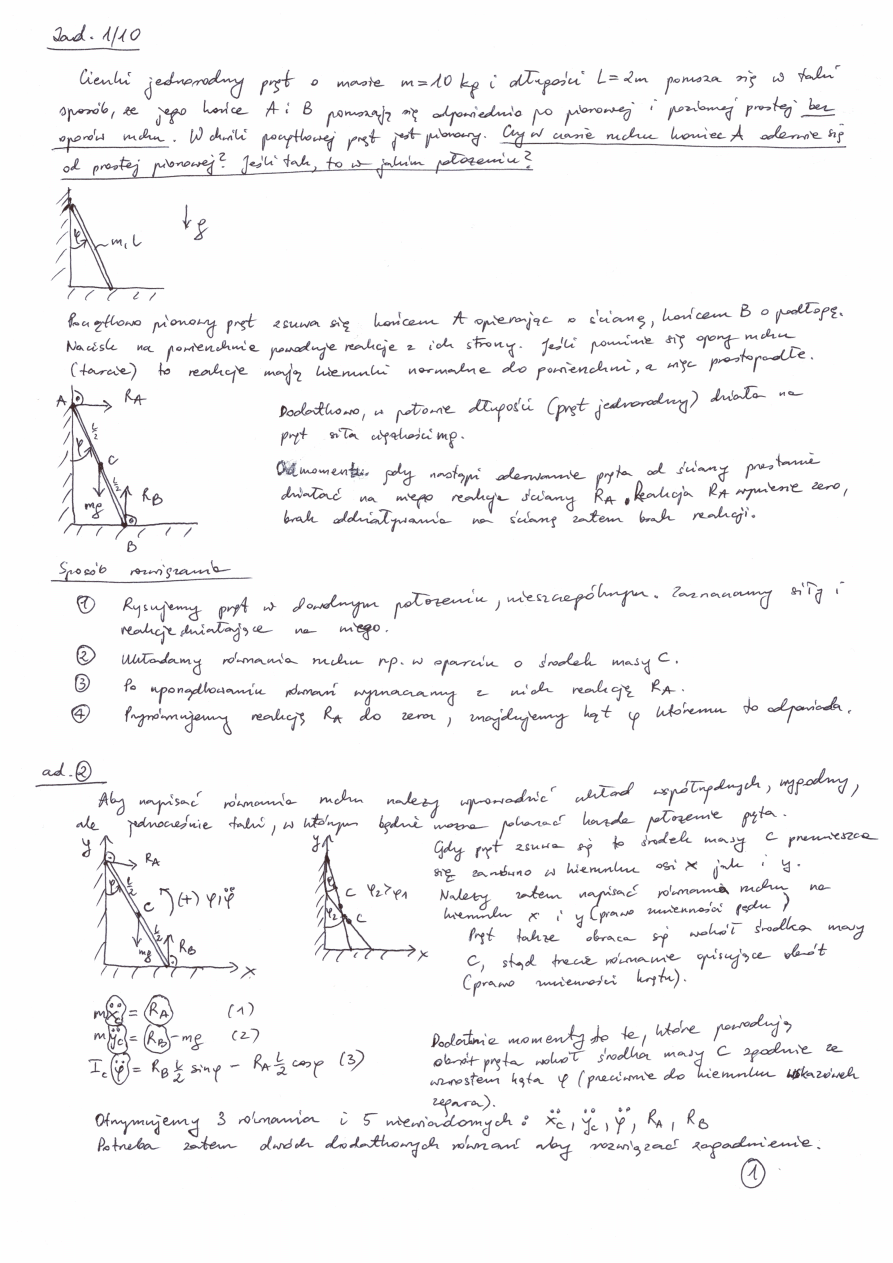 Zad. 1/10
Cienki jednorodny pręt o masie m=10 kg i długości L=2m porusza się w taki
sposób, że jego końce A i B poruszają się odpowiednio po pionowej i poziomej prostej bez
oporów ruchu. W chwili początkowej pręt jest pionowy. Czy w czasie ruchu koniec A oderwie się
od prostej pionowej? Jeśli tak, to w jakim położeniu?
φ
m, L
g
Początkowo pionowy pręt zsuwa się końcem A opierając o ścianę, końcem B o podłogę.
Nacisk na powierzchnie powoduje reakcje z ich strony. Jeśli pominie się opory ruchu
(tarcie) to reakcje mają kierunki normalne do powierzchni, a więc prostopadłe.
A
RA
L/2
φ
C
L/2
mg
RB
B
Dodatkowo, w połowie długości (pręt jednorodny) działa na
pręt siła ciężkości mg.
Od momentu gdy nastąpi oderwanie pręta od ściany przestanie
działać na niego reakcja ściany RA. Reakcja RA wyniesie zero,
brak oddziaływania na ścianę zatem brak reakcji.
Sposób rozwiązania
① Rysujemy pręt w dowolnym położeniu, nieszczególnym. Zaznaczamy siły i
reakcje działające na niego.
② Układamy równania ruchu np. w oparciu o środek masy C.
③ Po uporządkowaniu równań wyznaczamy z nich reakcję RA.
④ Przyrównujemy reakcję RA do zera, znajdujemy kąt φ któremu to odpowiada.
ad. ②
Aby napisać równania ruchu należy wprowadzić układ współrzędnych, wygodny,
ale jednocześnie taki, w którym będzie można pokazać każde położenie pręta.
y
RA
φ
L/2
C
(+) φ, φ̈
L/2
mg
RB
x
y
φ
C
φ2>φ1
φ2
C
x
Gdy pręt zsuwa się to środek masy C przemieszcza
się zarówno w kierunku osi x jak i y.
Należy zatem napisać równania ruchu na
kierunku x i y (prawo zmienności pędu)
Pręt także obraca się wokół środka masy
C, stąd trzecie równanie opisujące obrót
(prawo zmienności krętu).
mẍc = RA (1)
mÿc = RB - mg (2)
Ic φ̈ = RB L/2 sinφ - RA L/2 cosφ (3)
Dodatnie momenty to te, które powodują
obrót pręta wokół środka masy C zgodnie ze
wzrostem kąta φ (przeciwnie do kierunku wskazówek
zegara).
Otrzymujemy 3 równania i 5 niewiadomych: ẍc, ÿc, φ̈, RA, RB
Potrzeba zatem dwóch dodatkowych równań aby rozwiązać zagadnienie.
①